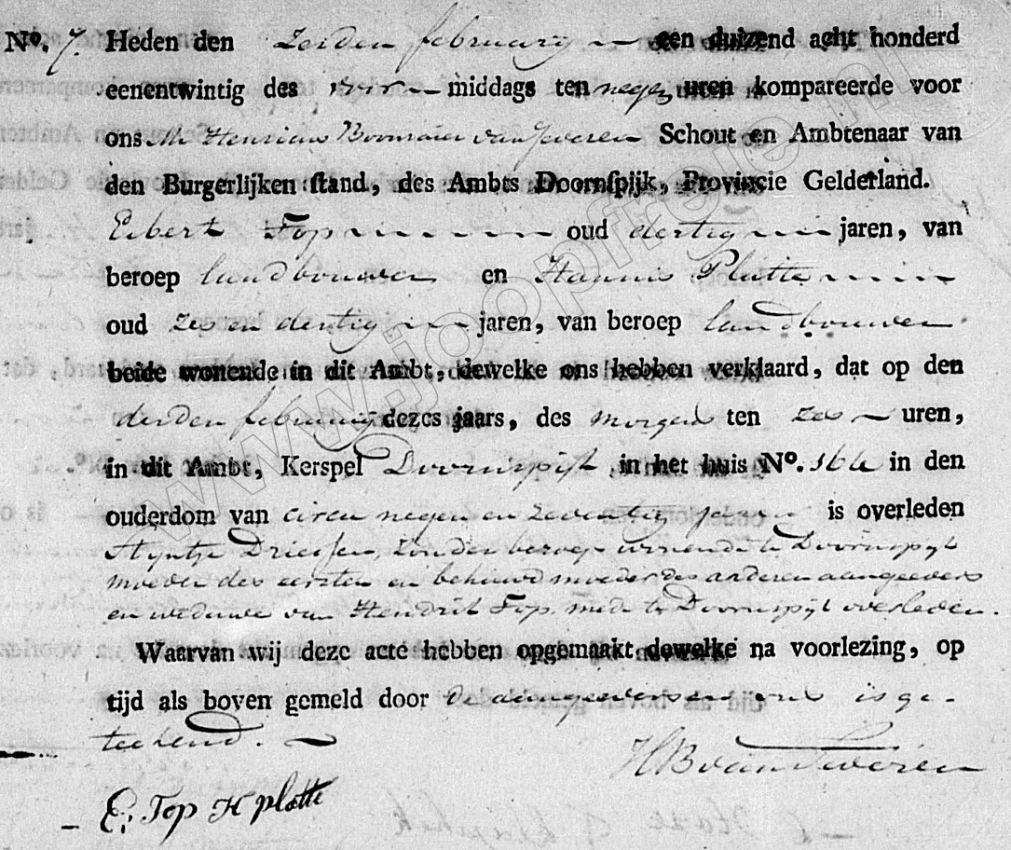 No. 7. Heden den zesden february een duizend acht honderd
eenentwintig des voor middags ten negen uren kompareerde voor
ons Mr Henricus van Sweren Schout en Ambtenaar van
den Burgerlijken stand, des Ambts Doornspijk, Provincie Gelderland.
Eibert Top oud dertig jaren, van
beroep landbouwer en Hannis Platte
oud zes en dertig jaren, van beroep landbouwer
beide wonende in dit Ambt, dewelke ons hebben verklaard, dat op den
derden february dezes jaars, des morgens ten zes uren,
in dit Ambt, Kerspel Doornspijk in het huis No. 16 in den
ouderdom van circa negen en zeventig jaren is overleden
Stijntje Driessen, zonder beroep wonende te Doornspijk
moeder des eersten en behuwd moeder des anderen aangeevers
en weduwe van Hendrik Top mede te Doornspijk overleden.
Waarvan wij deze acte hebben opgemaakt dewelke na voorlezing, op
tijd als boven gemeld door de aangeevers en ons is ge-
teekend.
HB van Sweren
E: Top H platte
www.joopfreije.nl